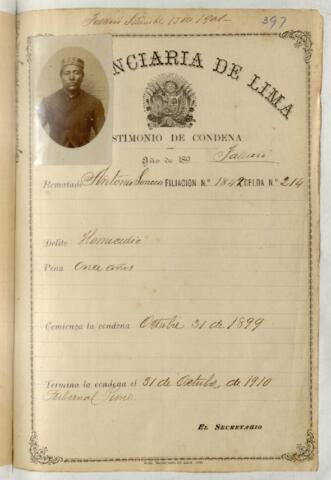 Setiembre 13 de 1901
397
NCIARIA DE LIMA
STIMONIO DE CONDENA
Año de 189
Falleció
Rematado Antonio FILIACION N.º 1842 CELDA N.º 214
Delito Homicidio
Pena Once años
Comienza la condena Octubre 31 de 1899
Termina la condena el 31 de Octubre de 1910
Tribunal
EL SECRETARIO